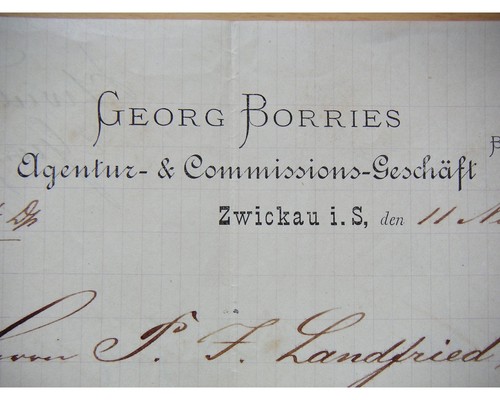 GEORG BORRIES
Agentur- & Commissions-Geschäft
Zwickau i. S, den 11
P. F. Landfried